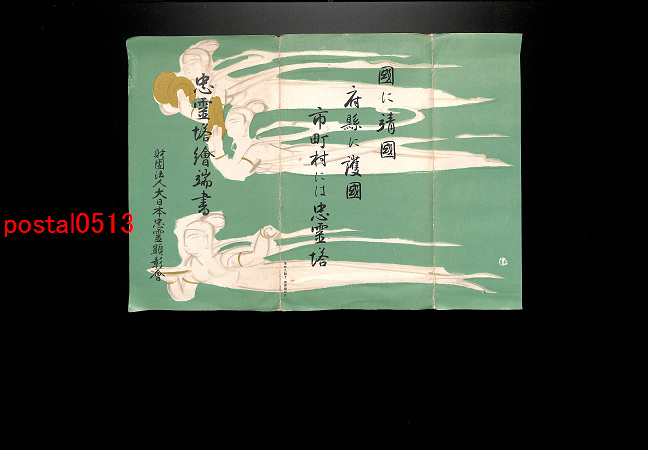 國に靖國
府縣に護國
市町村には忠霊塔
忠霊塔繪端書
財團法人大日本忠霊顕彰會
postal0513